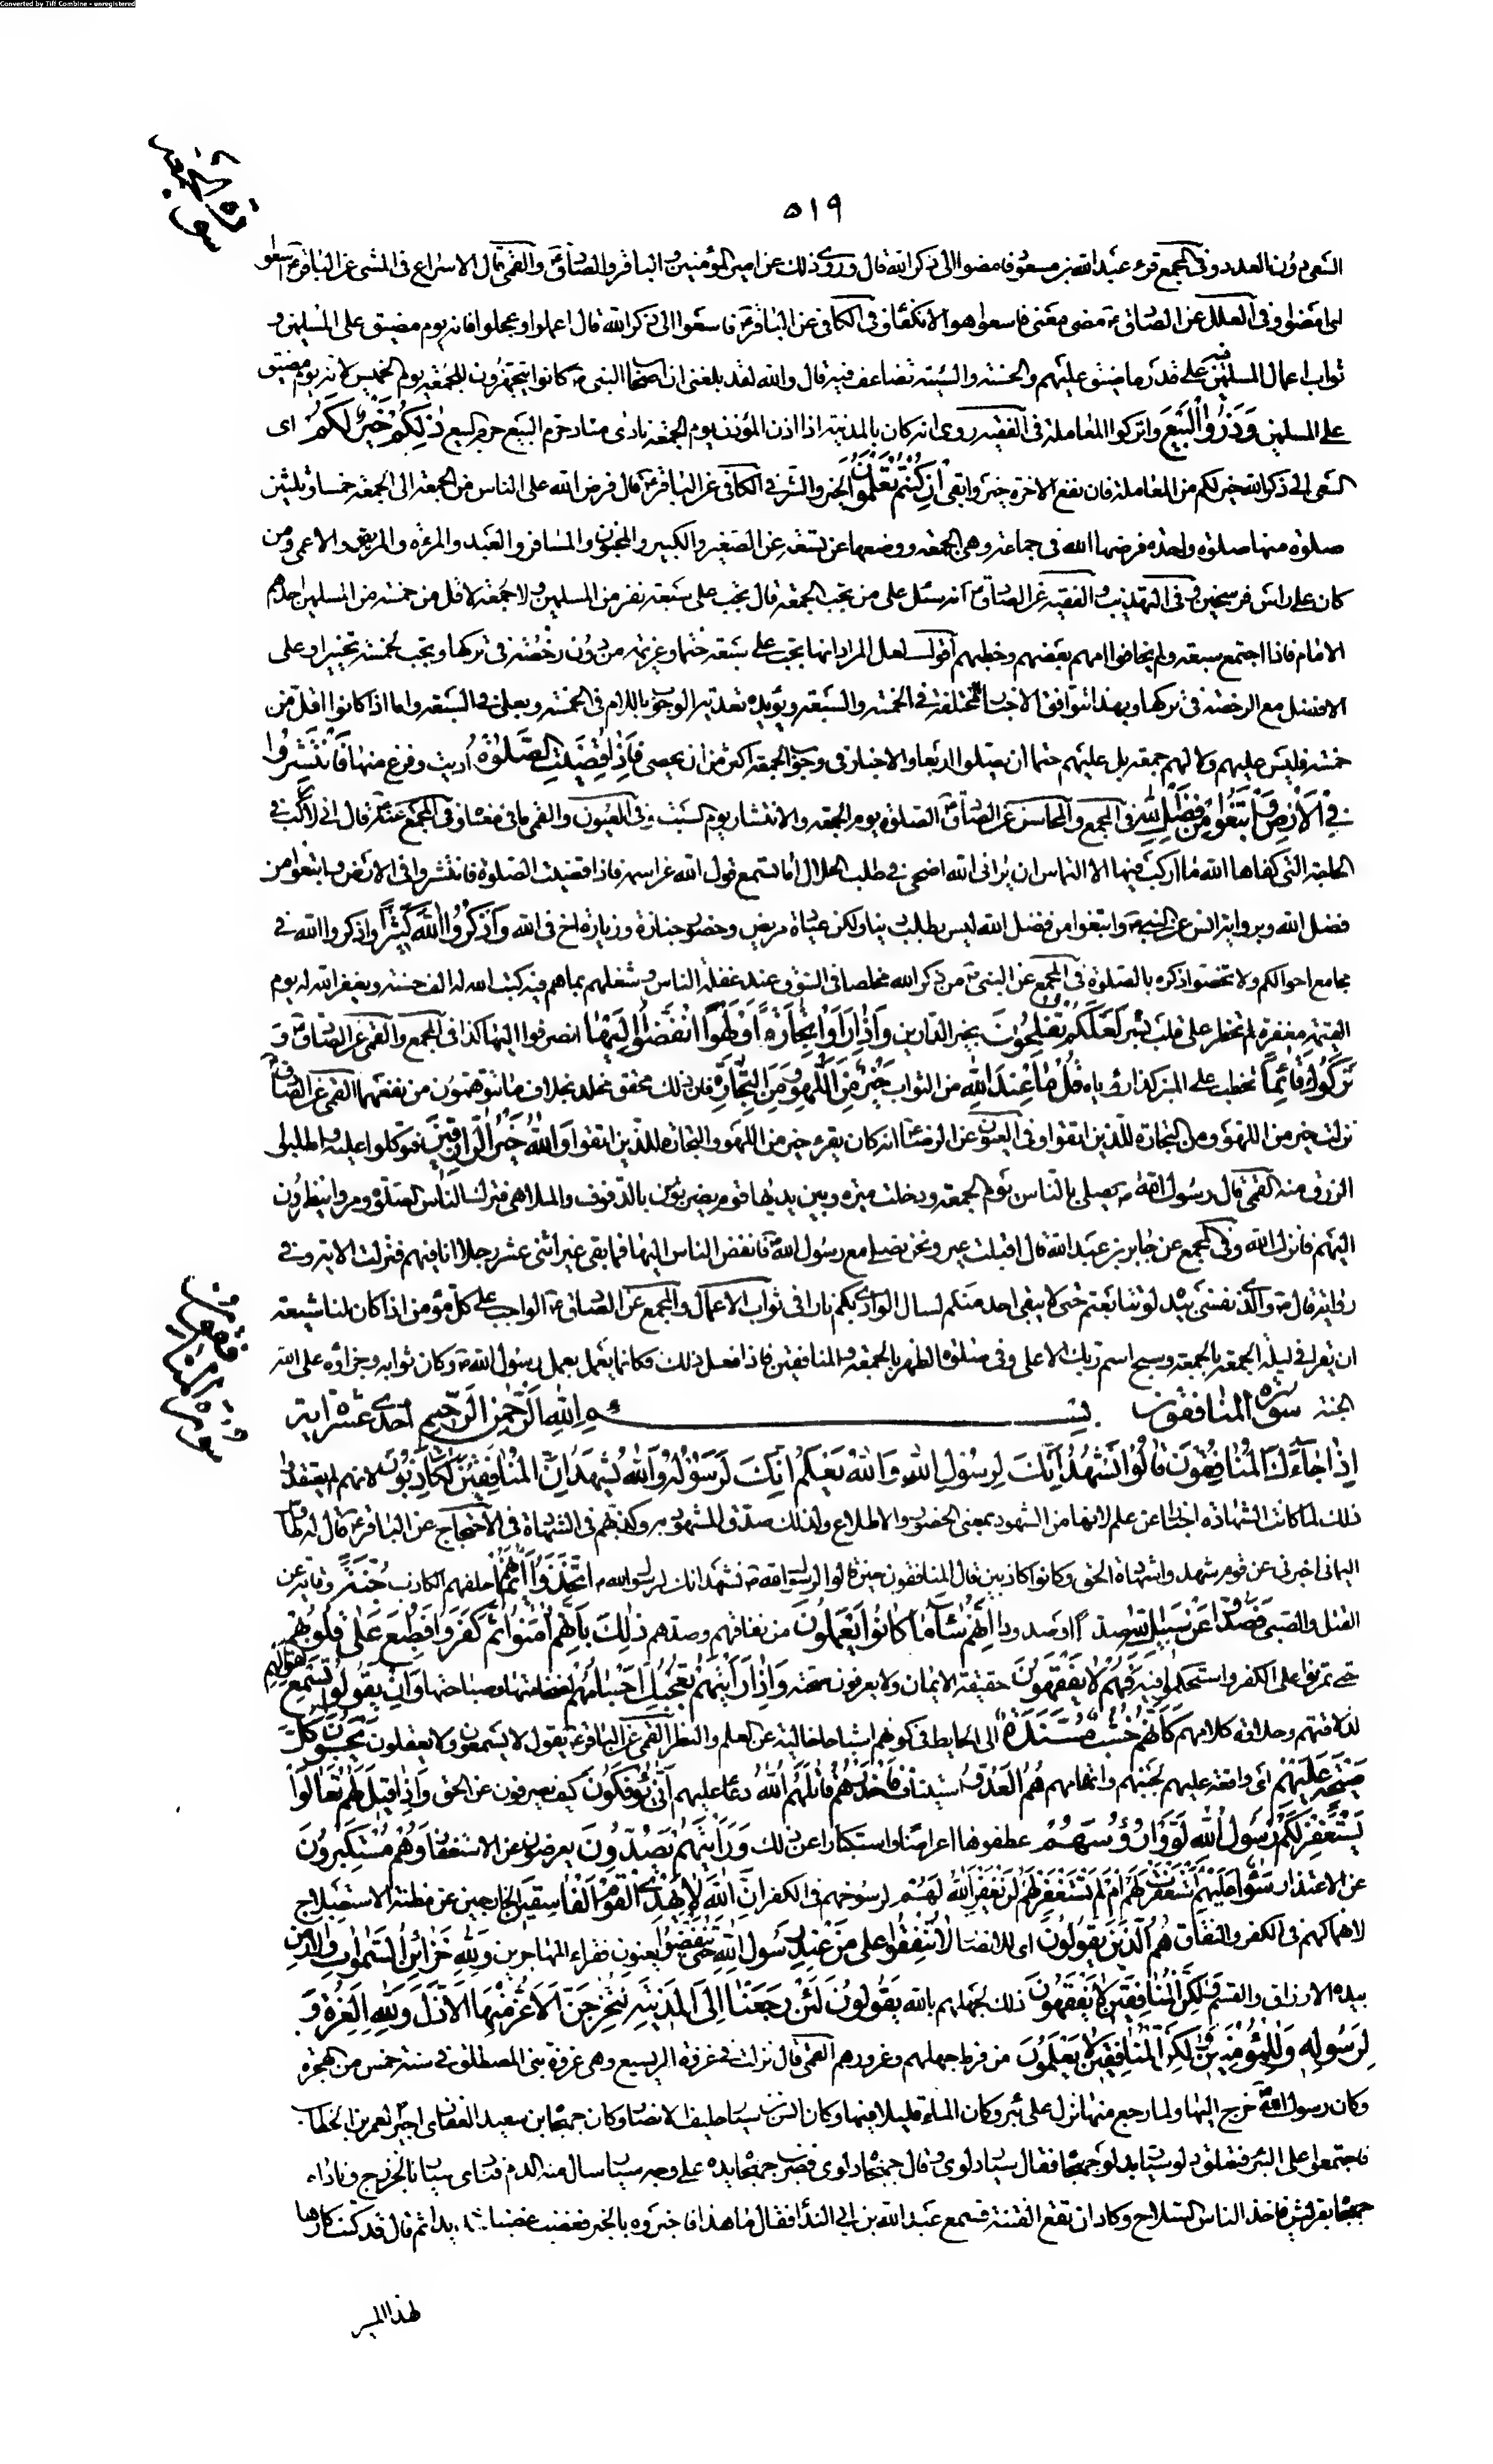 Converted by Tiff Combine - unregistered
٥١٩
السعى دون العدو و فى المجمع قرء عبد الله بن مسعود فامضوا الى ذكر الله قال و روى ذلك عن امير المؤمنين و الباقر و الصادق ع و القمى قال الاسراع فى المشى عن الباقر ع اسعوا
اى امضوا و فى العلل عن الصادق ع معنى فاسعوا هو الانكفاء و فى الكافى عن الباقر ع فاسعوا الى ذكر الله قال اعملوا و عجلوا فانه يوم مضيق على المسلمين و
ثواب اعمال المسلمين فيه على قدر ما ضيق عليهم و الحسنة و السيئة تضاعف فيه قال و الله لقد بلغنى ان اصحاب النبى ص كانوا يتجهزون للجمعة يوم الخميس لانه يوم مضيق
على المسلمين وَذَرُوا الْبَيْعَ و اتركوا المعاملة فى الفقيه روى انه كان بالمدينة اذا اذن المؤذن يوم الجمعة نادى مناد حرم البيع حرم البيع ذٰلِكُمْ خَيْرٌ لَكُمْ اى
السعى الى ذكر الله خير لكم من المعاملة فان نفع الاخرة خير و ابقى اِنْ كُنْتُمْ تَعْلَمُونَ الخير و الشر فى الكافى عن الباقر ع قال فرض الله على الناس من الجمعة الى الجمعة خمسا و ثلثين
صلوة منها صلوة واحدة فرضها الله فى جماعة و هى الجمعة و وضعها عن تسعة عن الصغير و الكبير و المجنون و المسافر و العبد و المرءة و المريض و الاعمى و من
كان على راس فرسخين و فى التهذيب و الفقيه عن الصادق ع انه سئل على من تجب الجمعة قال تجب على سبعة نفر من المسلمين و لا جمعة لاقل من خمسة من المسلمين احدهم
الامام فاذا اجتمع سبعة و لم يخافوا امهم بعضهم و خطبهم اقول لعل المراد انها تجب على سبعة حتما و عزيمة من دون رخصة فى تركها و تجب لخمسة تخييرا و على
الافضل مع الرخصة فى تركها و بهذا تتوافق الاخبار المختلفة فى الخمسة و السبعة و يؤيده تعدية الوجوب باللام فى الخمسة و بعلى فى السبعة و اما اذا كانوا اقل من
خمسة فليس عليهم و لا لهم جمعة بل عليهم حتما ان يصلوا اربعا و الاخبار فى وجوب الجمعة اكثر من ان يحصى فَاِذٰا قُضِيَتِ الصَّلٰوةُ اديت و فرغ منها فَانْتَشِرُوا
فِى الْاَرْضِ وَابْتَغُوا مِنْ فَضْلِ اللهِ فى المجمع و المحاسن عن الصادق ع الصلوة يوم الجمعة و الانتشار يوم السبت و فى العيون و القمى ما فى معناه و فى المجمع عنه ع قال انى لاركب فى
الحاجة التى كفاها الله ما اركب فيها الا التماس ان يرانى الله اضحى فى طلب الحلال اما تسمع قول الله عز اسمه فاذا قضيت الصلوة فانتشروا فى الارض و ابتغوا من
فضل الله و برواية انس عن النبى ص و ابتغوا من فضل الله ليس بطلب دنيا و لكن عيادة مريض و حضور جنازة و زيارة اخ فى الله وَاذْكُرُوا اللهَ كَثِيرًا و اذكروا الله فى
مجامع احوالكم و لا تخصوا ذكره بالصلوة فى المجمع عن النبى ص من ذكر الله مخلصا فى السوق عند غفلة الناس و شغلهم بما هم فيه كتب الله له الف حسنة و يغفر الله له يوم
القيمة مغفرة لم تخطر على قلب بشر لَعَلَّكُمْ تُفْلِحُونَ بخير الدارين وَاِذٰا رَاَوْا تِجٰارَةً اَوْ لَهْوًا انْفَضُّوا اِلَيْهٰا انصرفوا اليها كذا فى المجمع و القمى عن الصادق ع وَ
تَرَكُوكَ قٰائِمًا تخطب على المنبر كذا روياه قُلْ مٰا عِنْدَ اللهِ من الثواب خَيْرٌ مِنَ اللَّهْوِ وَمِنَ التِّجٰارَةِ فان ذلك محقق مخلد بخلاف ما تتوهمون من نفعهما القمى عن الصادق ع
نزلت خير من اللهو و من التجارة للذين اتقوا و فى العيون عن الرضا ع انه كان يقرء خير من اللهو و التجارة للذين اتقوا وَاللهُ خَيْرُ الرّٰازِقِينَ فتوكلوا عليه و اطلبوا
الرزق منه القمى قال رسول الله ص يصلى بالناس يوم الجمعة و دخلت ميرة و بين يديها قوم يضربون بالدفوف و الملاهى فترك الناس الصلوة و مروا ينظرون
اليهم فانزل الله و فى المجمع عن جابر بن عبد الله قال اقبلت عير و نحن نصلى مع رسول الله ص فانفض الناس اليها فما بقى غير اثنى عشر رجلا انا فيهم فنزلت الاية و فى
رواية قال ص و الذى نفسى بيده لو تتابعتم حتى لا يبقى احد منكم لسال الوادى بكم نارا فى ثواب الاعمال و المجمع عن الصادق ع الواجب على كل مؤمن اذا كان لنا شيعة
ان يقرا فى ليلة الجمعة بالجمعة و سبح اسم ربك الاعلى و فى صلوة الظهر بالجمعة و المنافقين فاذا فعل ذلك فكانما يعمل بعمل رسول الله ص و كان ثوابه و جزاؤه على الله
الجنة سورة المنافقون بسم الله الرحمن الرحيم احدى عشر اية
اِذٰا جٰاءَكَ الْمُنٰافِقُونَ قٰالُوا نَشْهَدُ اِنَّكَ لَرَسُولُ اللهِ وَاللهُ يَعْلَمُ اِنَّكَ لَرَسُولُهُ وَاللهُ يَشْهَدُ اِنَّ الْمُنٰافِقِينَ لَكٰاذِبُونَ لانهم لم يعتقدوا
ذلك لما كانت الشهادة اخبارا عن علم لانها من الشهود بمعنى الحضور و الاطلاع و لذلك صدق المشهود به و كذبهم فى الشهادة فى الاحتجاج عن الباقر ع قال له طاوس
اليمانى اخبرنى عن قوم شهدوا شهادة الحق و كانوا كاذبين قال المنافقون حين قالوا لرسول الله ص نشهد انك لرسول الله ص اتَّخَذُوا اَيْمٰانَهُمْ حلفهم الكاذب جُنَّةً وقاية عن
القتل و السبى فَصَدُّوا عَنْ سَبِيلِ اللهِ صدا او صدودا اِنَّهُمْ سٰاءَ مٰا كٰانُوا يَعْمَلُونَ من نفاقهم و صدهم ذٰلِكَ بِاَنَّهُمْ اٰمَنُوا ثُمَّ كَفَرُوا فَطُبِعَ عَلٰى قُلُوبِهِمْ
حتى تمرنوا على الكفر و استحكموا فيه فَهُمْ لٰا يَفْقَهُونَ حقيقة الايمان و لا يعرفون صحته وَاِذٰا رَاَيْتَهُمْ تُعْجِبُكَ اَجْسٰامُهُمْ لضخامتها و صباحتها وَاِنْ يَقُولُوا تَسْمَعْ لِقَوْلِهِمْ
لذلاقتهم و حلاوة كلامهم كَاَنَّهُمْ خُشُبٌ مُسَنَّدَةٌ الى الحايط فى كونهم اشباحا خالية عن العلم و النظر القمى عن الباقر ع يقول لا يسمعون و لا يعقلون يَحْسَبُونَ كُلَّ
صَيْحَةٍ عَلَيْهِمْ اى واقعة عليهم لجبنهم و اتهامهم هُمُ الْعَدُوُّ استيناف فَاحْذَرْهُمْ قٰاتَلَهُمُ اللهُ دعاء عليهم اَنّٰى يُؤْفَكُونَ كيف يصرفون عن الحق وَاِذٰا قِيلَ لَهُمْ تَعٰالَوْا
يَسْتَغْفِرْ لَكُمْ رَسُولُ اللهِ لَوَّوْا رُؤُسَهُمْ عطفوها اعراضا و استكبارا عن ذلك وَرَاَيْتَهُمْ يَصُدُّونَ يعرضون عن الاستغفار وَهُمْ مُسْتَكْبِرُونَ
عن الاعتذار سَوٰاءٌ عَلَيْهِمْ اَسْتَغْفَرْتَ لَهُمْ اَمْ لَمْ تَسْتَغْفِرْ لَهُمْ لَنْ يَغْفِرَ اللهُ لَهُمْ لرسوخهم فى الكفر اِنَّ اللهَ لٰا يَهْدِى الْقَوْمَ الْفٰاسِقِينَ الخارجين عن مظنة الاستصلاح
لانهماكهم فى الكفر و النفاق هُمُ الَّذِينَ يَقُولُونَ اى للانصار لٰا تُنْفِقُوا عَلٰى مَنْ عِنْدَ رَسُولِ اللهِ حَتّٰى يَنْفَضُّوا يعنون فقراء المهاجرين وَلِلّٰهِ خَزٰائِنُ السَّمٰوٰاتِ وَالْاَرْضِ
بيده الارزاق و القسم وَلٰكِنَّ الْمُنٰافِقِينَ لٰا يَفْقَهُونَ ذلك لجهلهم بالله يَقُولُونَ لَئِنْ رَجَعْنٰا اِلَى الْمَدِينَةِ لَيُخْرِجَنَّ الْاَعَزُّ مِنْهَا الْاَذَلَّ وَلِلّٰهِ الْعِزَّةُ وَ
لِرَسُولِهِ وَلِلْمُؤْمِنِينَ وَلٰكِنَّ الْمُنٰافِقِينَ لٰا يَعْلَمُونَ من فرط جهلهم و غرورهم القمى قال نزلت فى غزوة المريسيع و هى غزوة بنى المصطلق فى سنة خمس من الهجرة
و كان رسول الله ص خرج اليها و لما رجع منها نزل على بئر و كان الماء قليلا فيها و كان انس بن سيار حليف الانصار و كان جهجاه بن سعيد الغفارى اجيرا لعمر بن الخطاب
فاجتمعوا على البئر فتعلق دلو سيار بدلو جهجاه فقال سيار دلوى و قال جهجاه دلوى فضرب جهجاه يده على وجه سيار فسال منه الدم فنادى سيار بالخزرج و نادى
جهجاه بقريش فاخذ الناس السلاح و كاد ان تقع الفتنة فسمع عبد الله بن ابى النداء فقال ما هذا فاخبروه بالخبر فغضب غضبا شديدا ثم قال قد كنت كارها
لهذا المسير